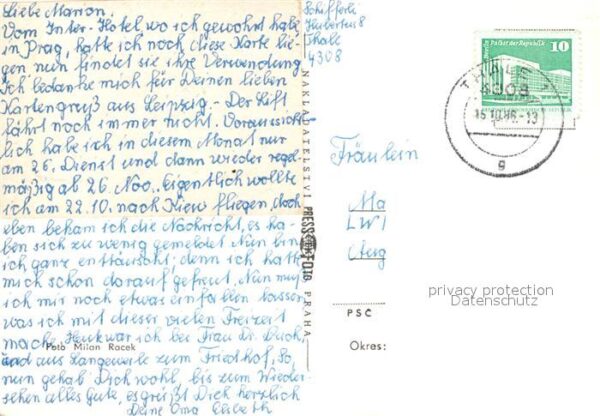 Liebe Marion.
Vom Inter-Hotel wo ich gewohnt habe
in Prag, hatte ich noch diese Karte lie-
gen nun findet sie ihre Verwendung
Ich bedanke mich für Deinen lieben
Kartengruß aus Leipzig.- Der Lift
fährt noch immer nicht. Voraussicht-
lich habe ich in diesem Monat nur
am 26. Dienst und dann wieder regel
mäßig ab 26. Nov. Eigentlich wollte
ich am 22.10. nach Kiew fliegen, doch
eben bekam ich die Nachricht, es ha-
ben sich zu wenig gemeldet. Nun bin
ich ganz enttäuscht; denn ich hatte
mich schon darauf gefreut. Nun muß
ich mir noch etwas einfallen lassen
was ich mit dieser vielen Freizeit
mache. Heut war ich bei Frau Dr. Buch,
Foto Milan Racek
und aus Langeweile zum Friedhof, So,
nun gehab Dich wohl, bis zum Wieder-
sehen alles Gute, es grüßt Dich herzlich
Deine Oma Elsbeth
NAKLADATELSTVÍ PRESSFOTO PRAHA
Schifferle
Hubertus 8
Thale
4308
Palast der Republik
10
THALE 1
4308
15.10.86-13
g
Fräulein
Ma
LWI
PSČ
Okres:
privacy protection
Datenschutz